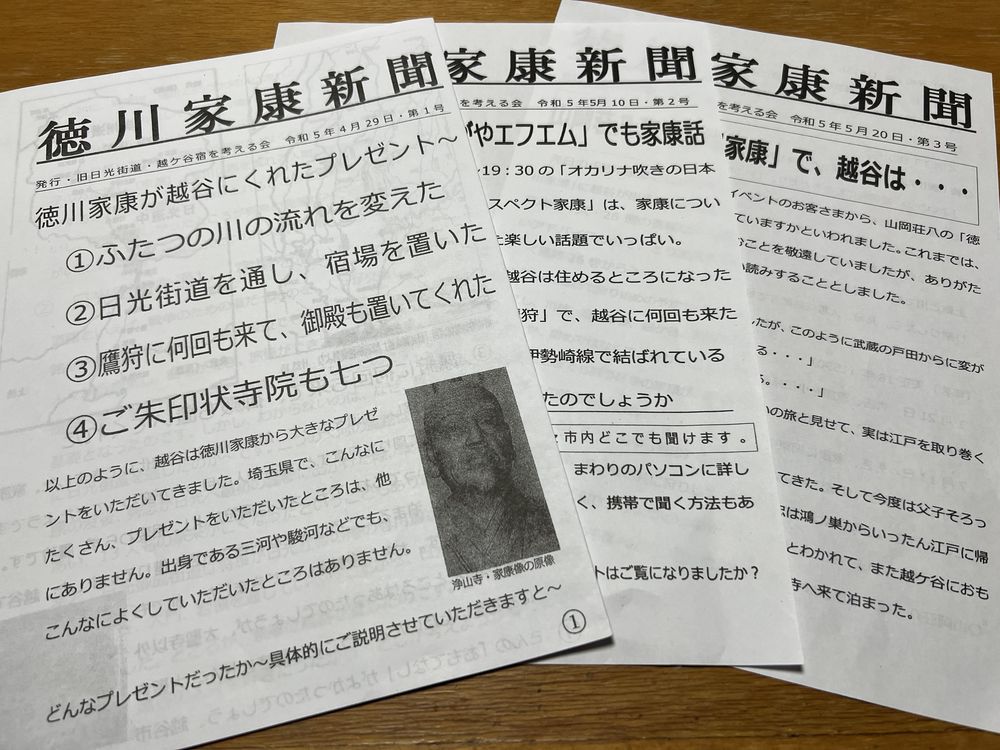 徳川家康新聞
発行・旧日光街道・越ケ谷宿を考える会 令和5年4月29日・第1号
徳川家康が越谷にくれたプレゼント～
①ふたつの川の流れを変えた
②日光街道を通し、宿場を置いた
③鷹狩に何回も来て、御殿も置いてくれた
④ご朱印状寺院も七つ
以上のように、越谷は徳川家康から大きなプレゼ
ントをいただいてきました。埼玉県で、こんなに
たくさん、プレゼントをいただいたところは、他
にありません。出身である三河や駿河などでも、
こんなによくしていただいたところはありません。
浄山寺・家康像の原像
どんなプレゼントだったか～具体的にご説明させていただきますと～
①
家康新聞
を考える会 令和5年5月10日・第2号
やエフエム」でも家康話
19：30の「オカリナ吹きの日本
スペクト家康」は、家康につい
た楽しい話題でいっぱい。
越谷は住めるところになった
狩」で、越谷に何回も来た
伊勢崎線で結ばれている
たのでしょうか
市内どこでも聞けます。
まわりのパソコンに詳し
く、携帯で聞く方法もあ
トはご覧になりましたか？
家康新聞
を考える会 令和5年5月20日・第3号
家康」で、越谷は・・・
イベントのお客さまから、山岡荘八の「徳
ていますかといわれました。これまでは、
むことを敬遠していましたが、ありがた
読みすることとしました。
たが、このように武蔵の戸田からに変が
る・・・」
る。・・・」
いの旅と見せて、実は江戸を取り巻く
てきた。そして今度は父子そろっ
は鴻ノ巣からいったん江戸に帰
とわかれて、また越ケ谷におも
寺へ来て泊まった。